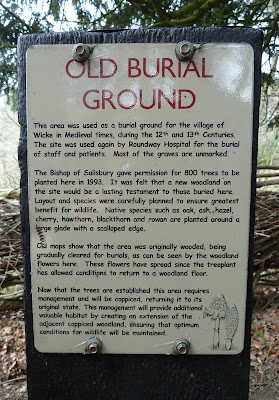 OLD BURIAL
GROUND
This area was used as a burial ground for the village of
Wicke in Medieval times, during the 12th and 13th Centuries.
The site was used again by Roundway Hospital for the burial
of staff and patients. Most of the graves are unmarked.
The Bishop of Salisbury gave permission for 800 trees to be
planted here in 1993. It was felt that a new woodland on
the site would be a lasting testament to those buried here.
Layout and species were carefully planned to ensure greatest
benefit for wildlife. Native species such as oak, ash, hazel,
cherry, hawthorn, blackthorn and rowan are planted around a
large glade with a scalloped edge.
Old maps show that the area was originally wooded, being
gradually cleared for burials, as can be seen by the woodland
flowers here. These flowers have spread since the treeplant
has allowed conditions to return to a woodland floor.
Now that the trees are established this area requires
management and will be coppiced, returning it to its
original state. This management will provide additional
valuable habitat by creating an extension of the
adjacent coppiced woodland, ensuring that optimum
conditions for wildlife will be maintained.